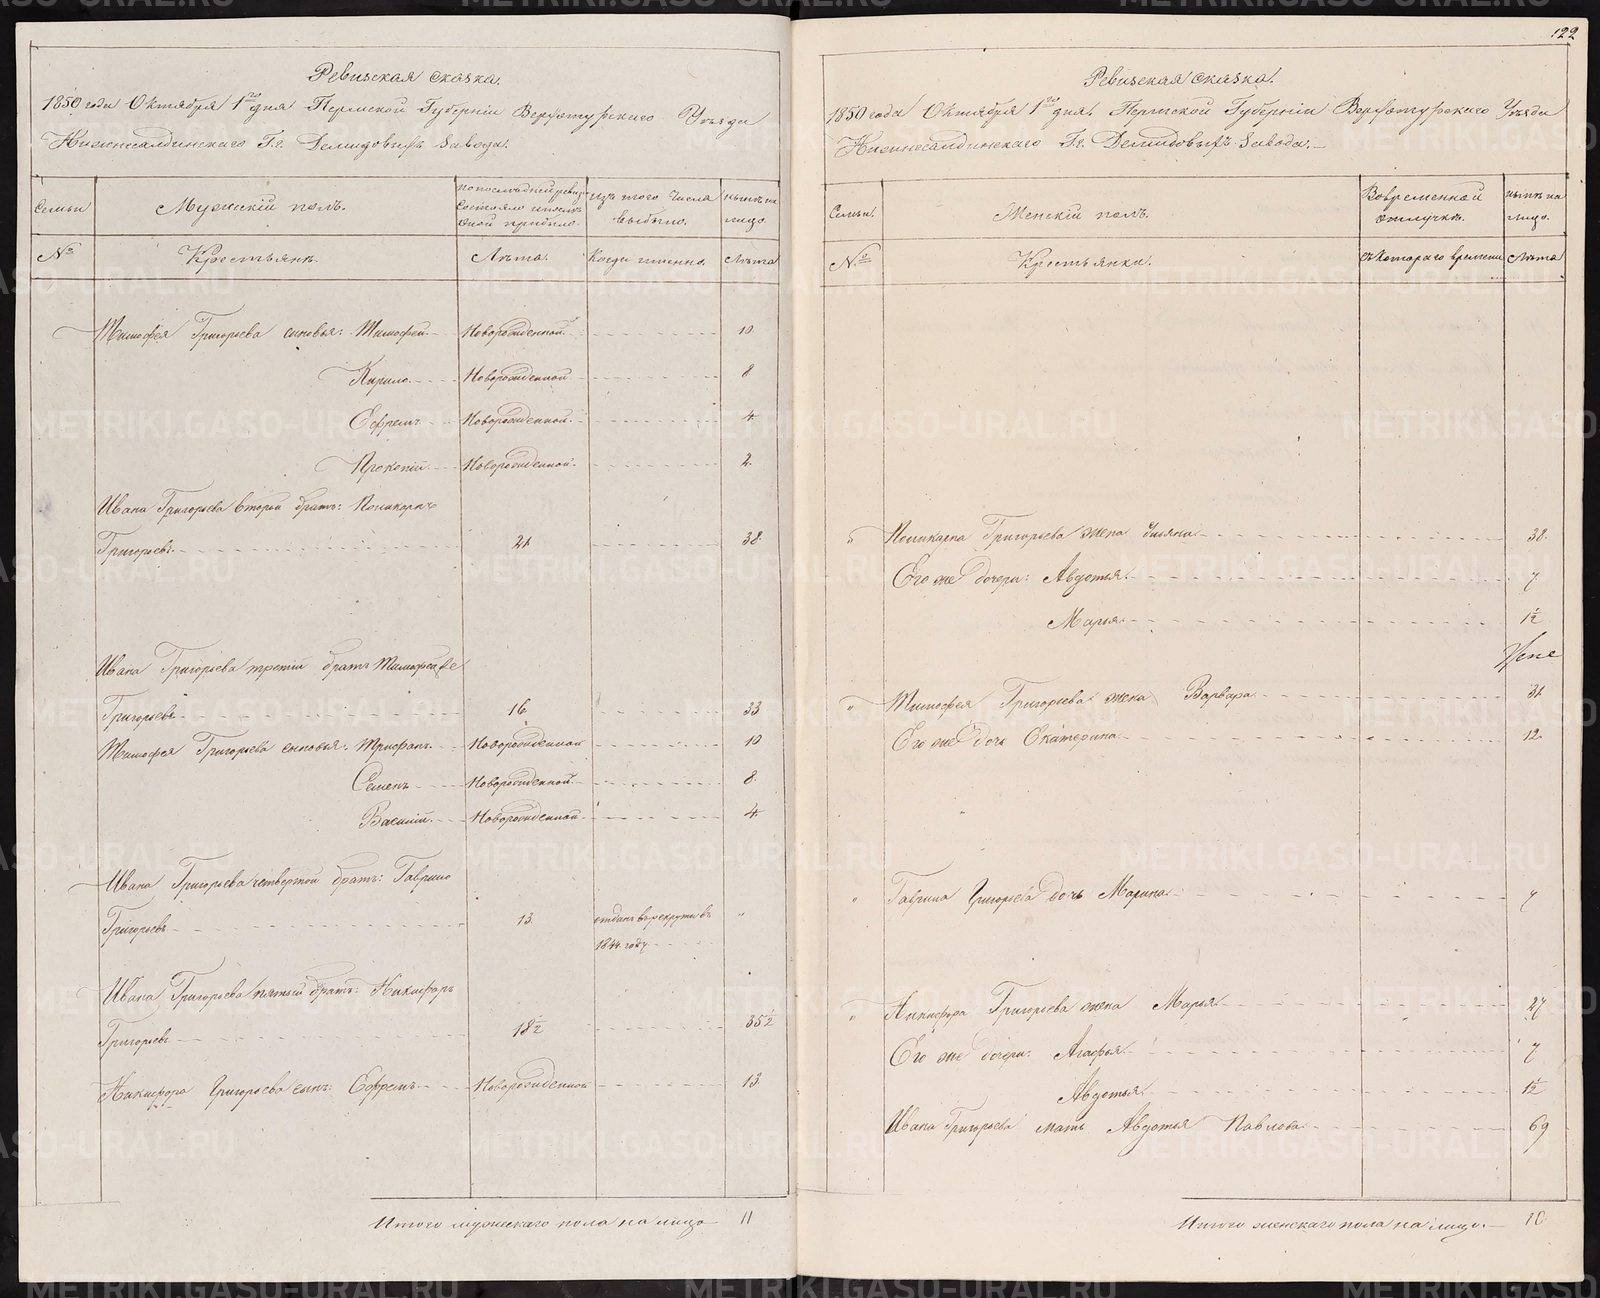 Ревизская сказка.
1850 года Октября 1го дня Пермской Губерніи Верхотурскаго Уѣзда
Нижнесалдинскаго Гг. Демидовыхъ Завода.
Семьи
Мужскій полъ.
По последней ревизіи
состояло и послѣ
оной прибыло.
Изъ того числа
выбыло.
Нынѣ на
лицо.
№
Крестьянъ.
Лѣта.
Когда именно.
Лѣта
Тимофея Григорьева сыновья: Тимофей Новорожденной 10.
Кирило Новорожденной 8
Ефремъ Новорожденной 4.
Прокопій Новорожденной 2.
Ивана Григорьева второй братъ: Поликарпъ
Григорьевъ 21 38.
Ивана Григорьева третій братъ Тимофей
Григорьевъ 16 33
Тимофея Григорьева сыновья: Трифанъ Новорожденной 10
Семенъ Новорожденной 8.
Василій Новорожденной 4.
Ивана Григорьева четвертой братъ: Гаврило
Григорьевъ 13. отданъ в рекруты въ "
1844 году
Ивана Григорьева пятый братъ: Никифоръ
Григорьевъ 18½ 35½
Никифора Григорьева сынъ: Ефремъ Новорожденной 13.
Итого мужескаго пола на лицо 11
122
Ревизская сказка.
1850 года Октября 1го дня. Пермской Губерніи Верхотурскаго Уѣзда
Нижнесалдинскаго Гг. Демидовыхъ Завода.
Семьи.
Женскій полъ.
Вовременной
отлучкѣ.
Нынѣ на
лицо.
№
Крестьянки.
Съ котораго времени
Лѣта
Поликарпа Григорьева жена Ульяна 38.
Его же дочери: Авдотья 7.
Марья 1½
Тимофея Григорьева жена Варвара 31.
Его же дочь Екатерина 12.
" Гаврила Григорьева дочь Марина 7
" Никифора Григорьева жена Марья 27
Его же дочери: Агафья 7
Авдотья 1½
Ивана Григорьева мать Авдотья Павлова 69
Итого женскаго пола на лицо. 10
METRIKI.GASO-URAL.RU